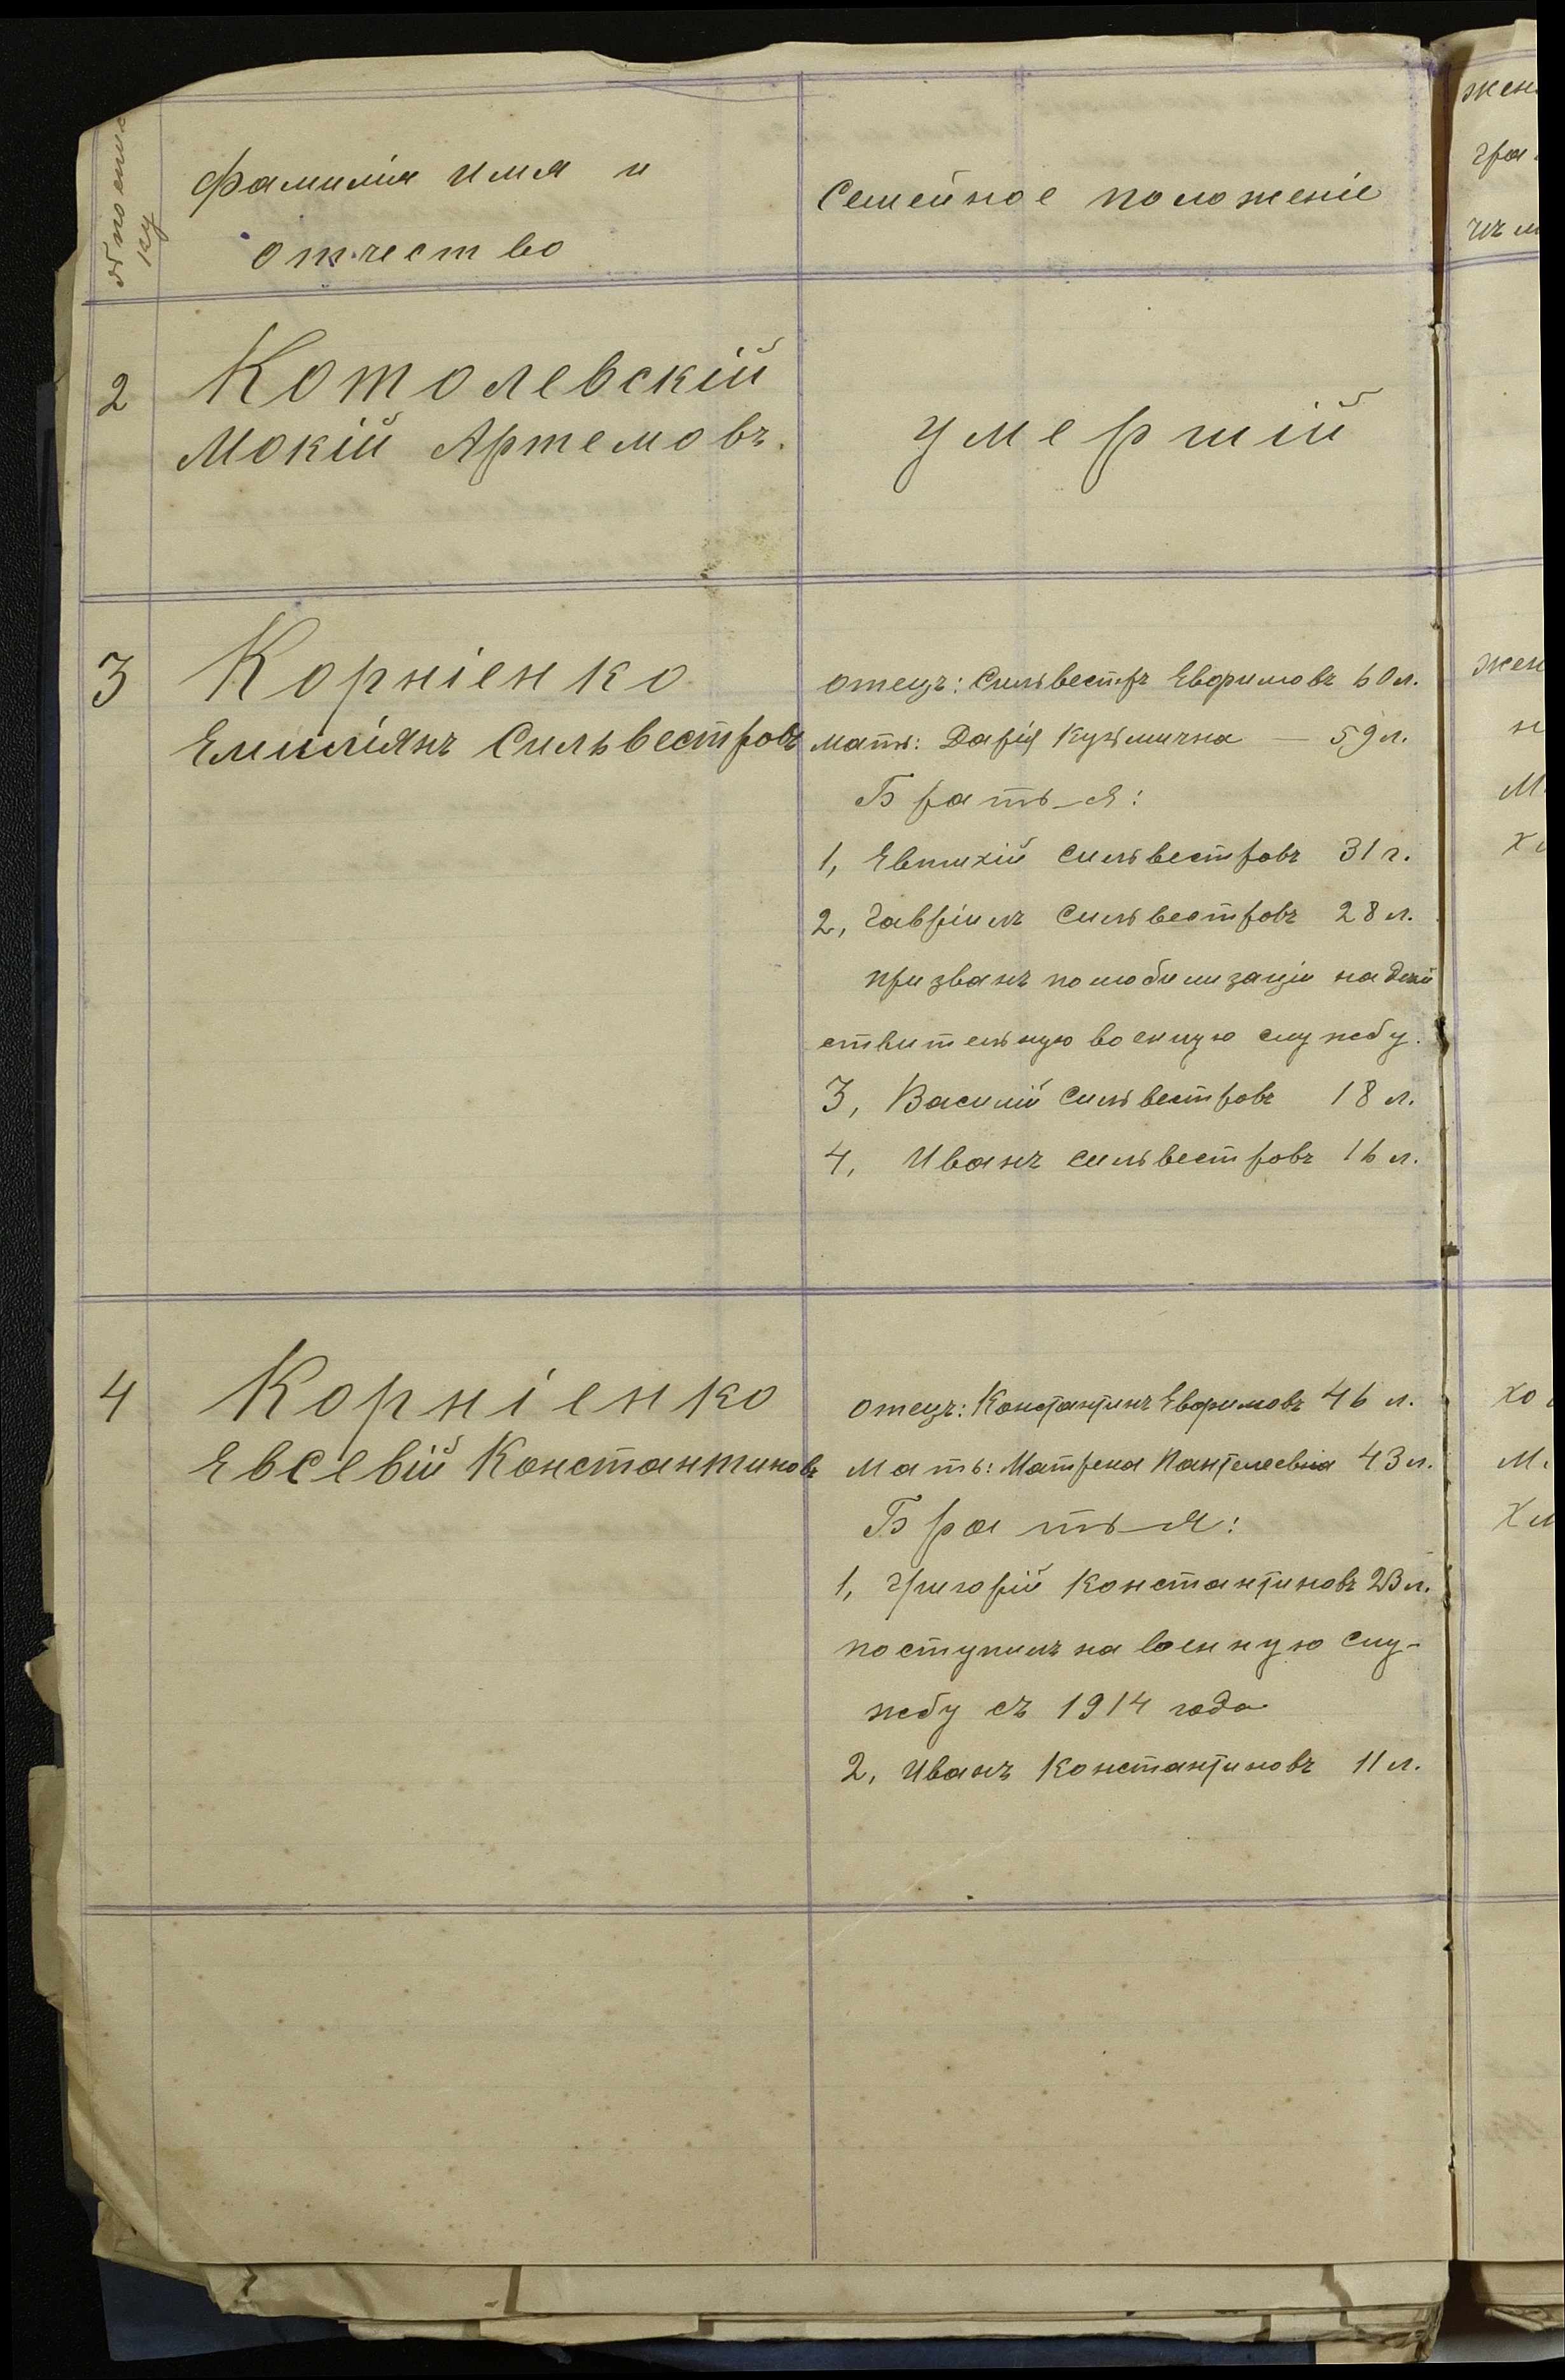 № по списку
Фамилія имя и
отчество
Семейное положеніе
2
Котолевскій
Мокій Артемовъ.
умершій
3
Корніенко
Емиліянъ Сильвестровъ
отецъ: Сильвестръ Евфимовъ 60 л.
мать: Дарія Кузьмична — 59 л.
Братья:
1, Евтихій Сильвестровъ 31 г.
2, Гавріилъ Сильвестровъ 28 л.
призванъ по мобилизаціи на дѣй
ствительную военную службу.
3, Василій Сильвестровъ 18 л.
4, Иванъ Сильвестровъ 16 л.
4
Корніенко
Евсевій Константиновъ
отецъ: Константинъ Евфимовъ 46 л.
Мать: Матрена Пантелеевна 43 л.
Братья:
1, Григорій Константиновъ 23 л.
поступилъ на военную слу-
жбу съ 1914 года
2, Иванъ Константиновъ 11 л.